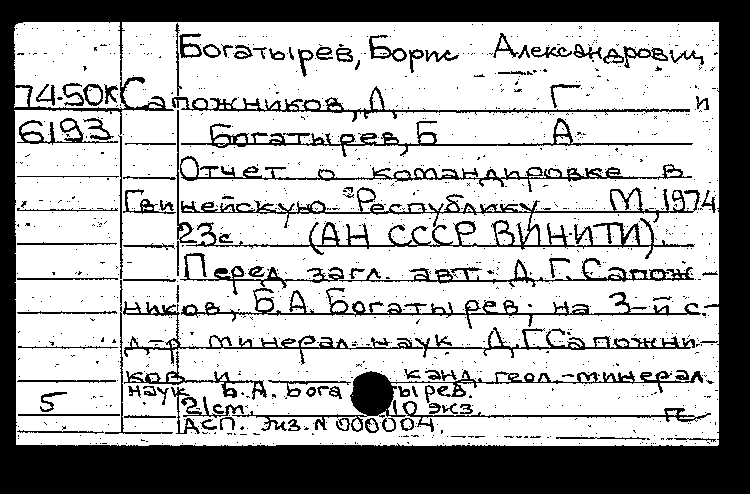 Богатырев, Борис Александрович
74-50К Сапожников, Д. Г. и
6193 Богатырев, Б. А.
Отчет о командировке в
Гвинейскую Республику. М., 1974
23с. (АН СССР ВИНИТИ).
Перед загл. авт.: Д.Г. Сапож-
ников, Б.А. Богатырев; на 3-й с.-
д-р минерал. наук Д.Г. Сапожни-
ков и канд. геол.-минерал.
наук Б.А. Богатырев.
5 21ст. 10 экз.
АСП. Экз. N 000004.